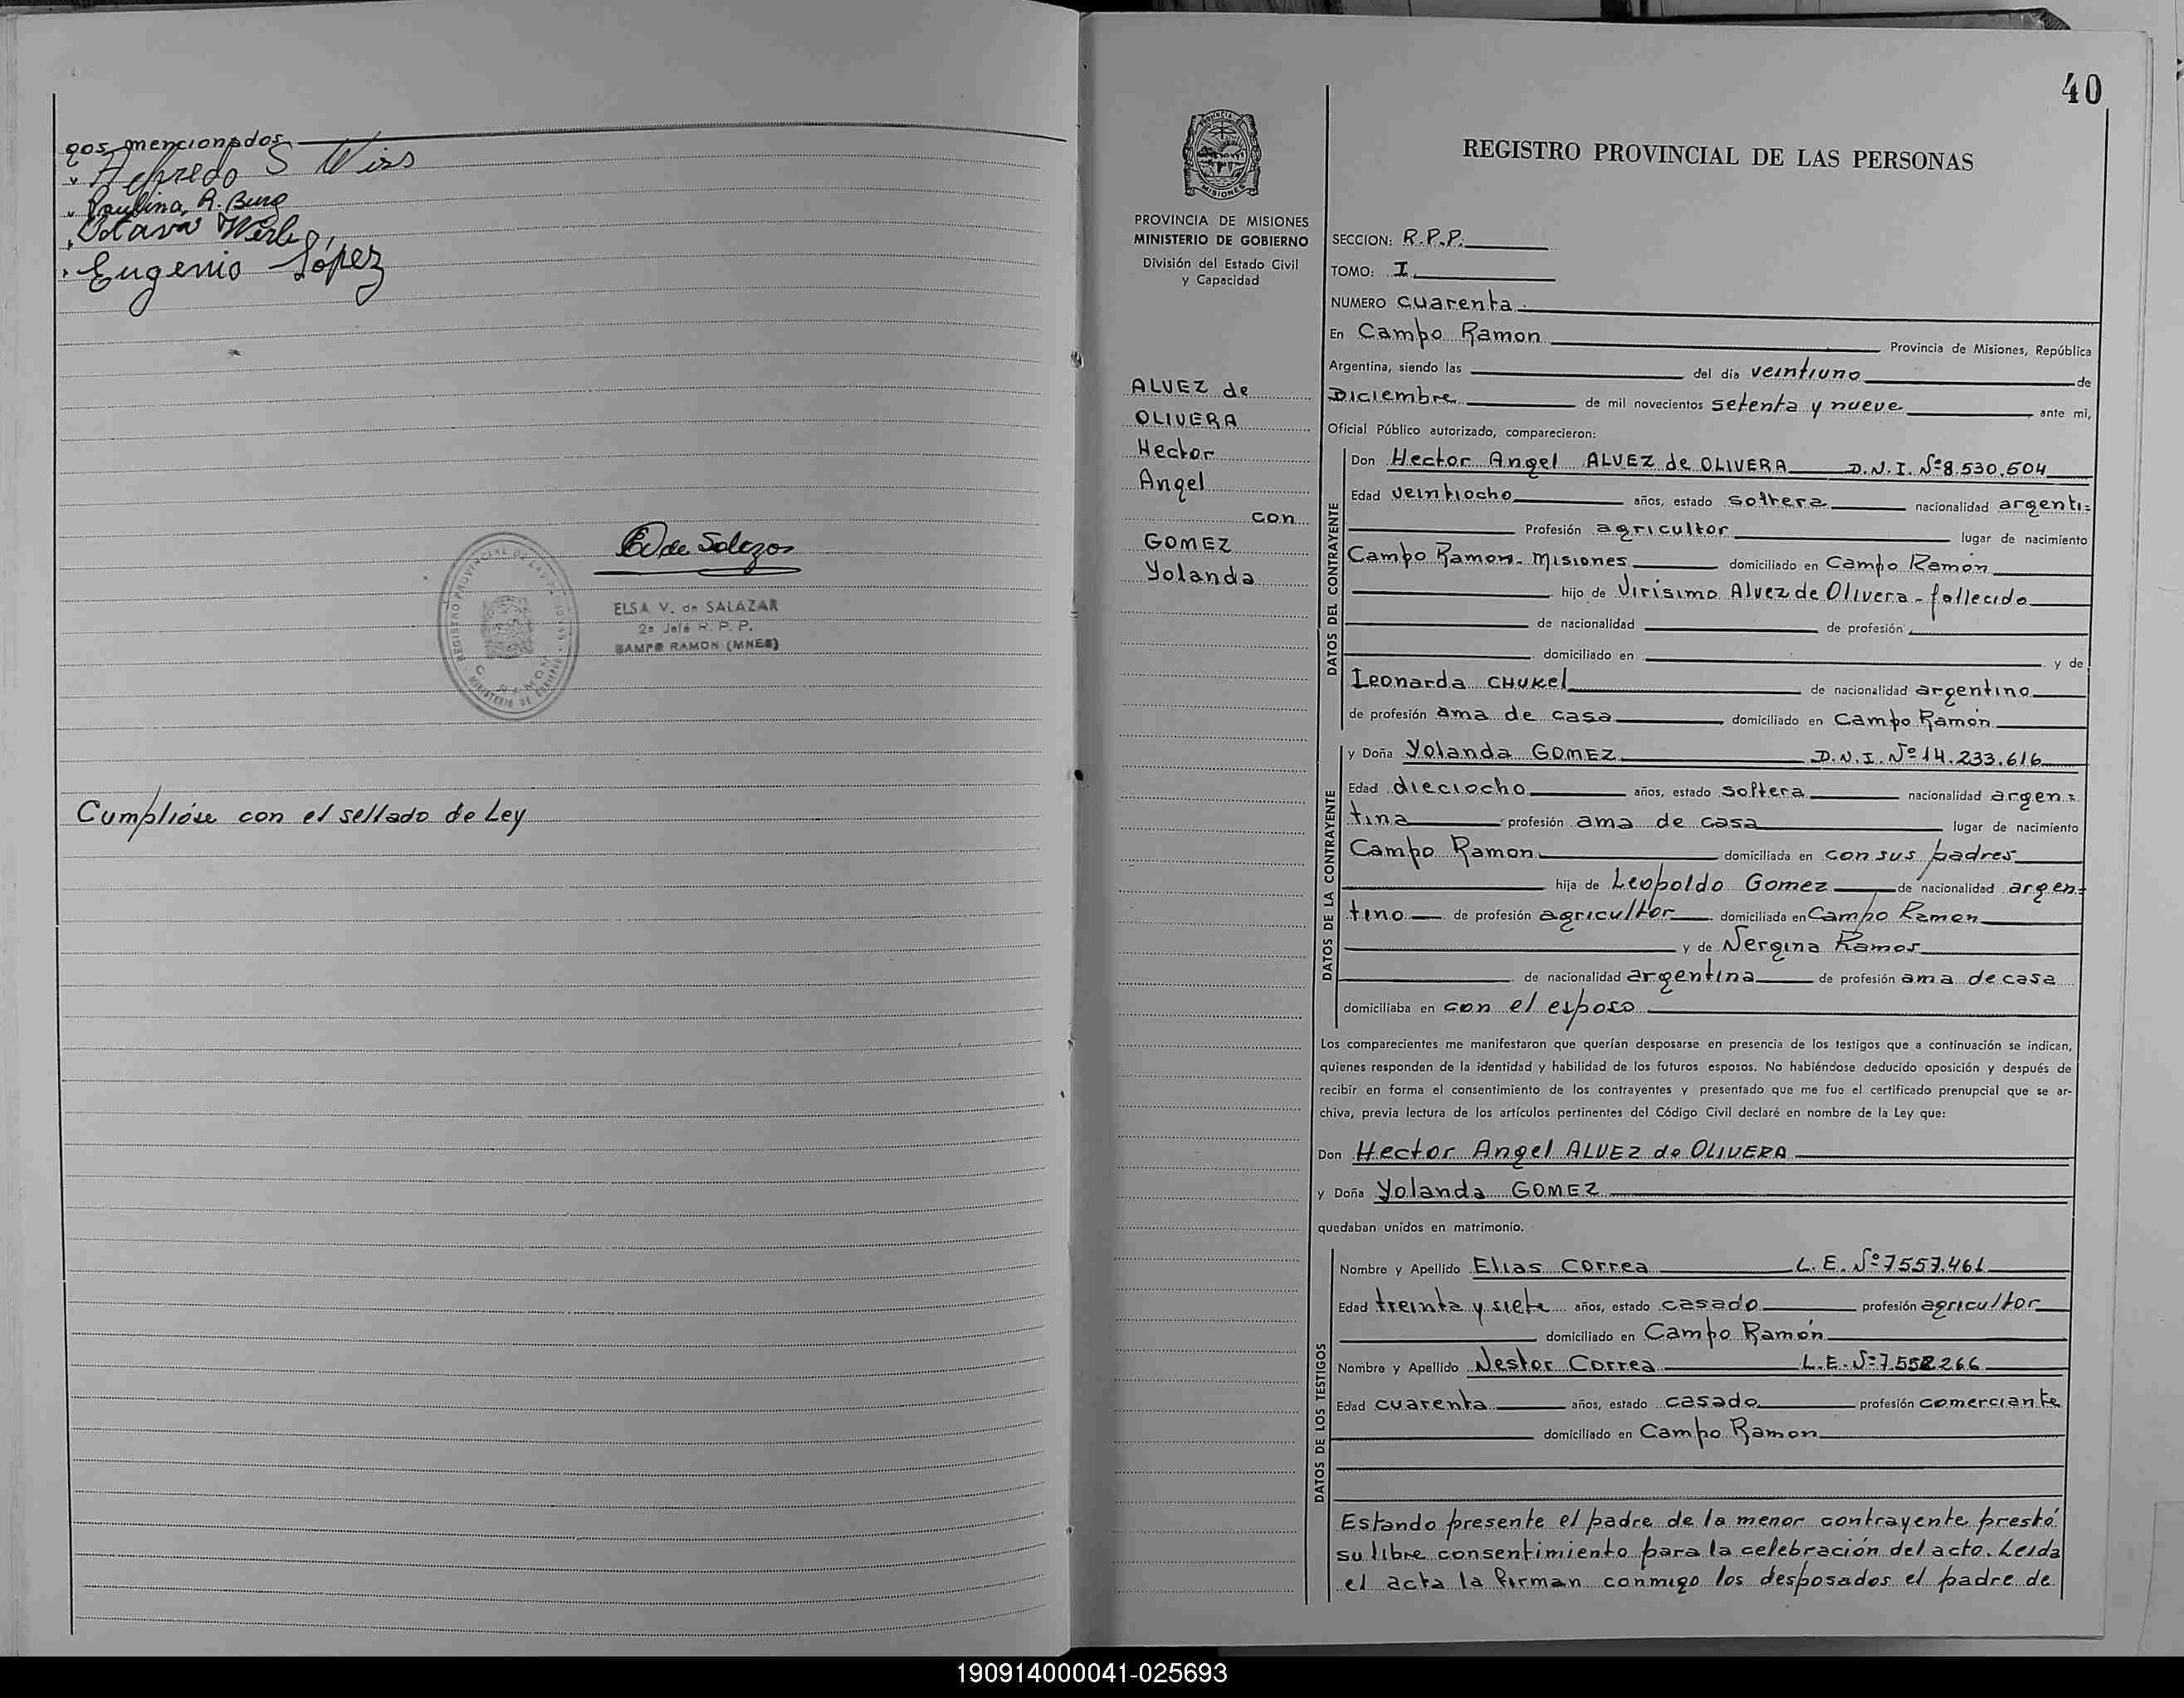 gos mencionados
Alfredo S Wirs
Paulina, R. Burg
Werle
Eugenio López
ELSA V. de SALAZAR
2a Jefe R. P. P.
CAMPO RAMON (MNES)
Cumplióse con el sellado de Ley
40
PROVINCIA DE MISIONES
MINISTERIO DE GOBIERNO
División del Estado Civil
y Capacidad
ALVEZ de
OLIVERA
Hector
Angel
con
GOMEZ
Yolanda
REGISTRO PROVINCIAL DE LAS PERSONAS
SECCION: R.P.P.
TOMO: I
NUMERO cuarenta
En Campo Ramon Provincia de Misiones, República
Argentina, siendo las del día veintiuno de
Diciembre de mil novecientos setenta y nueve ante mi,
Oficial Público autorizado, comparecieron:
DATOS DEL CONTRAYENTE
Don Hector Angel ALVEZ de OLIVERA D.N.I. Nº 8.530.504
Edad veintiocho años, estado soltera nacionalidad argenti=
Profesión agricultor lugar de nacimiento
Campo Ramon. Misiones domiciliado en Campo Ramón
hijo de Virisimo Alvez de Olivera - fallecido
de nacionalidad de profesión
domiciliado en y de
Leonarda CHUKel de nacionalidad argentino
de profesión ama de casa domiciliado en Campo Ramón
DATOS DE LA CONTRAYENTE
y Doña Yolanda GOMEZ D.N.I. Nº 14.233.616
Edad dieciocho años, estado soltera nacionalidad argen=
tina profesión ama de casa lugar de nacimiento
Campo Ramon domiciliada en con sus padres
hija de Leopoldo Gomez de nacionalidad argen=
tino de profesión agricultor domiciliada en Campo Ramon
y de Nergina Ramos
de nacionalidad argentina de profesión ama de casa
domiciliaba en con el esposo
Los comparecientes me manifestaron que querían desposarse en presencia de los testigos que a continuación se indican,
quienes responden de la identidad y habilidad de los futuros esposos. No habiéndose deducido oposición y después de
recibir en forma el consentimiento de los contrayentes y presentado que me fue el certificado prenupcial que se ar-
chiva, previa lectura de los artículos pertinentes del Código Civil declaré en nombre de la Ley que:
Don Hector Angel ALVEZ de OLIVERA
y Doña Yolanda GOMEZ
quedaban unidos en matrimonio.
DATOS DE LOS TESTIGOS
Nombre y Apellido Elias Correa L.E. Nº 7557.461
Edad treinta y siete años, estado casado profesión agricultor
domiciliado en Campo Ramón
Nombre y Apellido Nestor Correa L.E. Nº 7.558.266
Edad cuarenta años, estado casado profesión comerciante
domiciliado en Campo Ramon
Estando presente el padre de la menor contrayente prestó
su libre consentimiento para la celebración del acto. Leida
el acta la firman conmigo los desposados el padre de
190914000041-025693